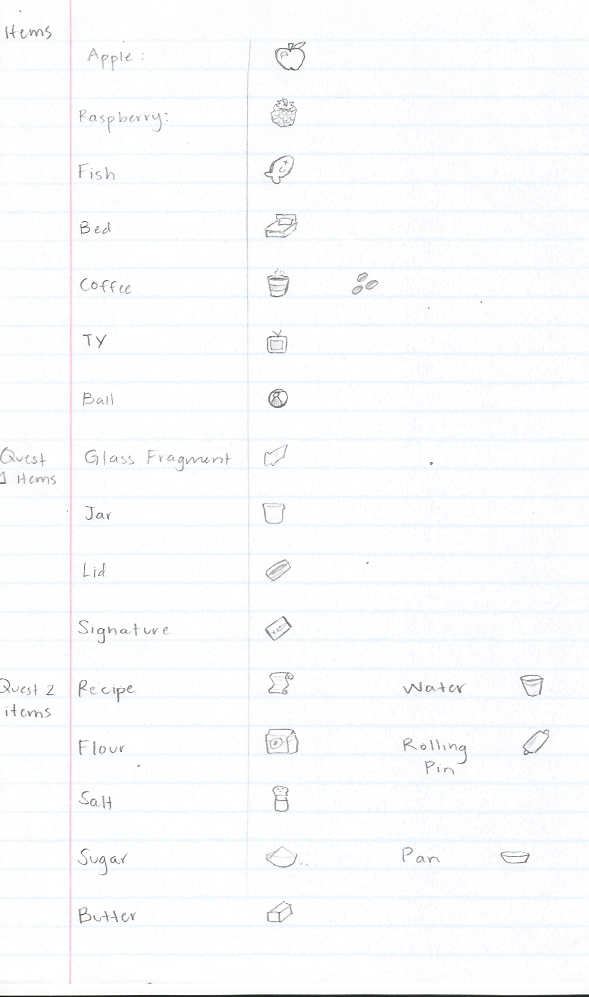 Items
Apple :
Raspberry:
Fish
Bed
Coffee
TY
Ball
Quest
1 items
Glass Fragment
Jar
Lid
Signature
Quest 2
items
Recipe
Water
Flour
Rolling
Pin
Salt
Sugar
Pan
Butter